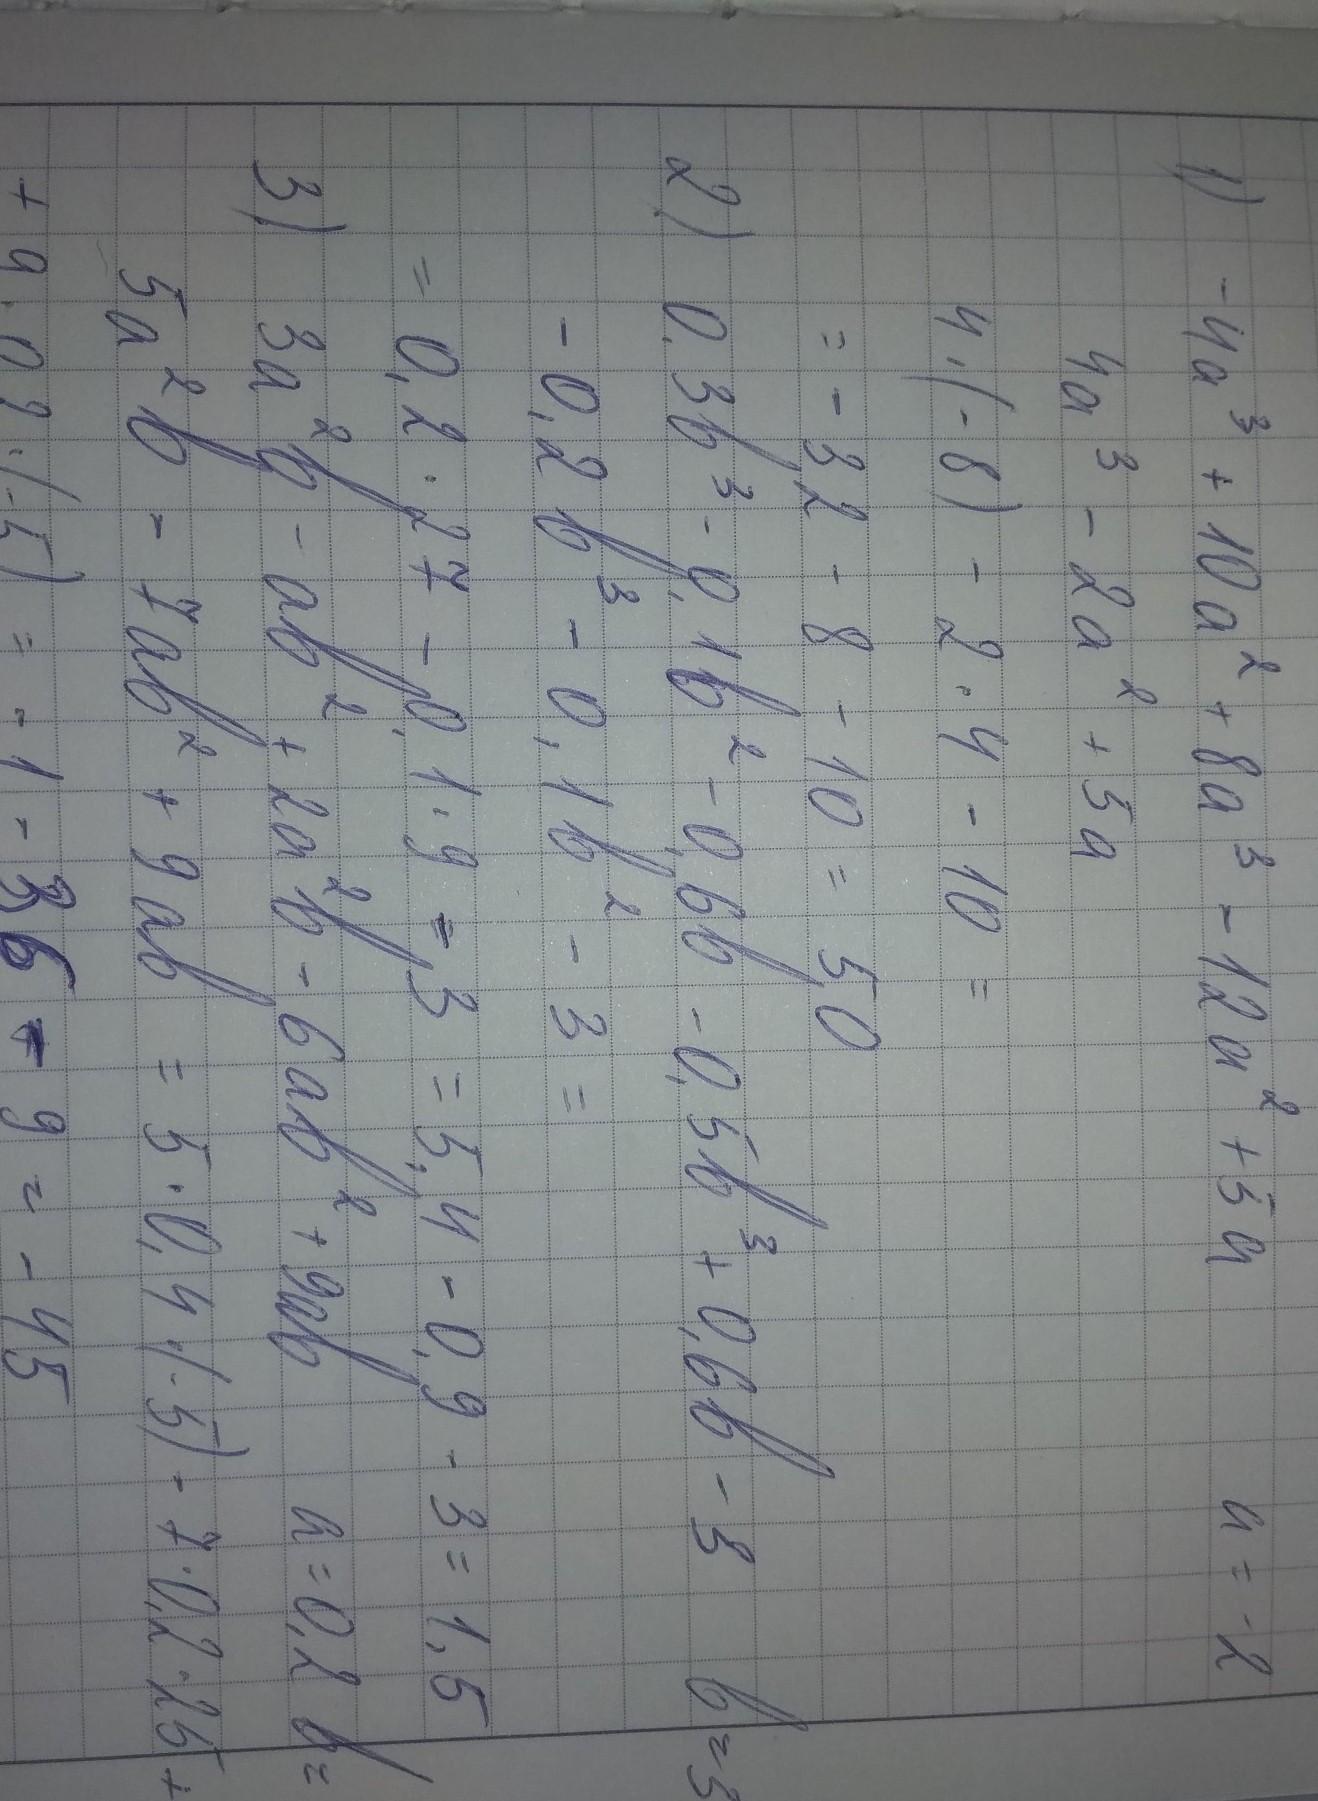 1) -4a³ + 10a² + 8a³ - 12a² + 5a a = -2
4a³ - 2a² + 5a
4·(-8) - 2·4 - 10 =
= -32 - 8 - 10 = 50
2) 0,3b³ - 0,1b² - 0,6b - 0,5b³ + 0,6b - 3 b = 3
-0,2b³ - 0,1b² - 3 =
= 0,2·27 - 0,1·9 - 3 = 5,4 - 0,9 - 3 = 1,5
3) 3a²b - ab² + 2a²b - 6ab² + 9ab a = 0,2 b =
5a²b - 7ab² + 9ab = 5·0,4·(-5) - 7·0,2·25 +
+ 9·0,2·(-5) = -1 - 36 - 9 = -45